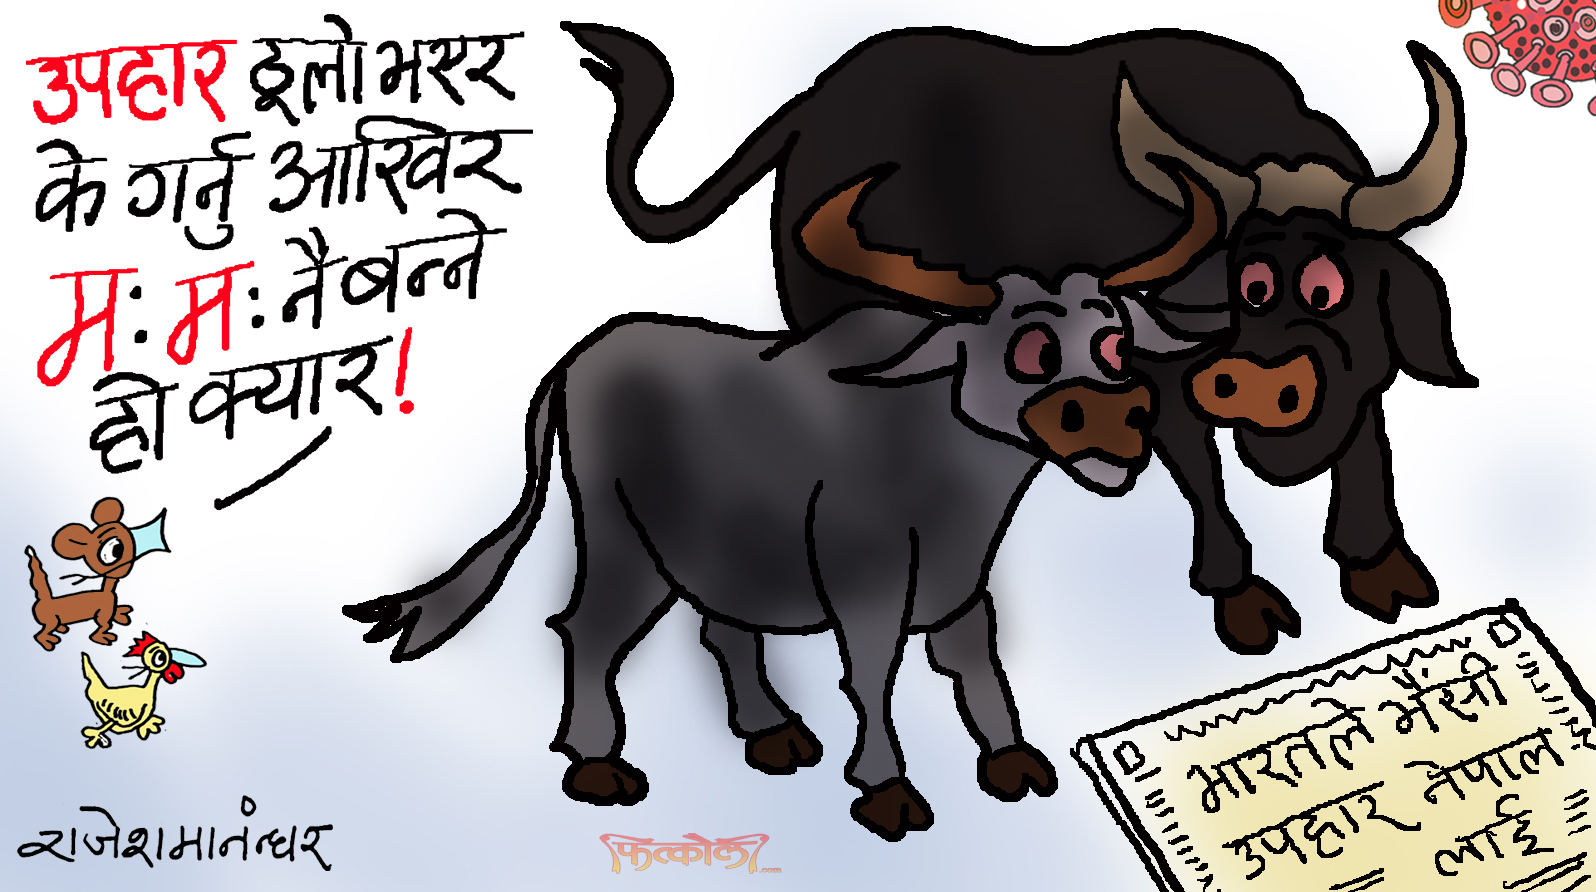 उपहार ठूलो भएर
के गर्नु आखिर
मः मः नै बन्ने
हो क्यार!
भारतले भैंसी
उपहार नेपाल
लाई
राजेश मानन्धर
फित्कौली.com